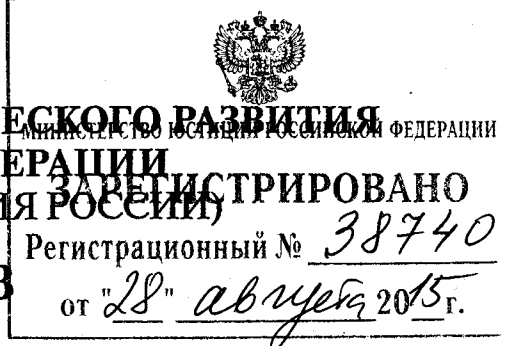 ЕСКОГО РАЗВИТИЯ
МИНИСТЕРСТВО ЮСТИЦИИ РОССИЙСКОЙ ФЕДЕРАЦИИ
ЕРАЦИИ
ЗАРЕГИСТРИРОВАНО
ИЯ РОССИИ)
Регистрационный № 38740
В
от "28" августа 2015 г.